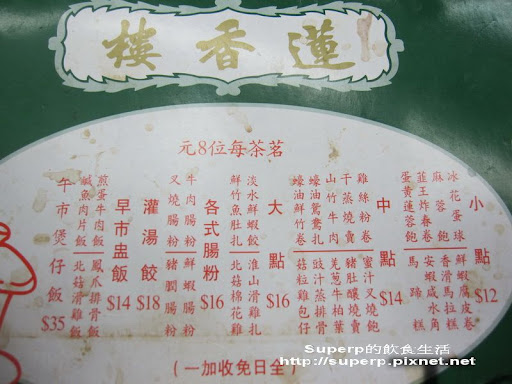 蓮香樓
茗茶每位8元
小點 $12
冰花蛋球 鮮蝦腐皮卷
麻蓉飽 香滑馬拉糕
韮王炸春卷 安蝦咸水角
蛋黃蓮蓉飽 馬蹄糕
中點 $14
雞絲粉卷 蜜汁叉燒飽
干蒸燒賣 豬釀燒賣
山竹牛肉 羌蔥牛柏葉
蠔油鴛鴦扎 豉汁蒸排骨
蠔油鮮竹卷 菇粒雞包仔
大點 $16
淡水鮮蝦餃 淮山滑雞扎
鮮竹魚肚扎 北菇棉花雞
各式腸粉 $16
牛肉腸粉 鮮蝦腸粉
叉燒腸粉 豬膶腸粉
灌湯餃 $18
早市盅飯 $14
煎蛋牛肉飯 鳳爪排骨飯
鹹魚肉片飯 北菇滑雞飯
午市煲仔飯 $35
(全日免收加一)
Superp的飲食生活
http://superp.pixnet.net